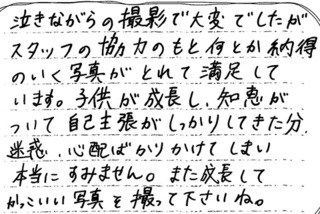 泣きながらの撮影で大変でしたが
スタッフの協力のもと何とか納得
のいく写真がとれて満足して
います。子供が成長し、知恵が
ついて自己主張がしっかりしてきた分、
迷惑、心配ばかりかけてしまい
本当にすみません。また成長して
かっこいい写真を撮って下さいね。